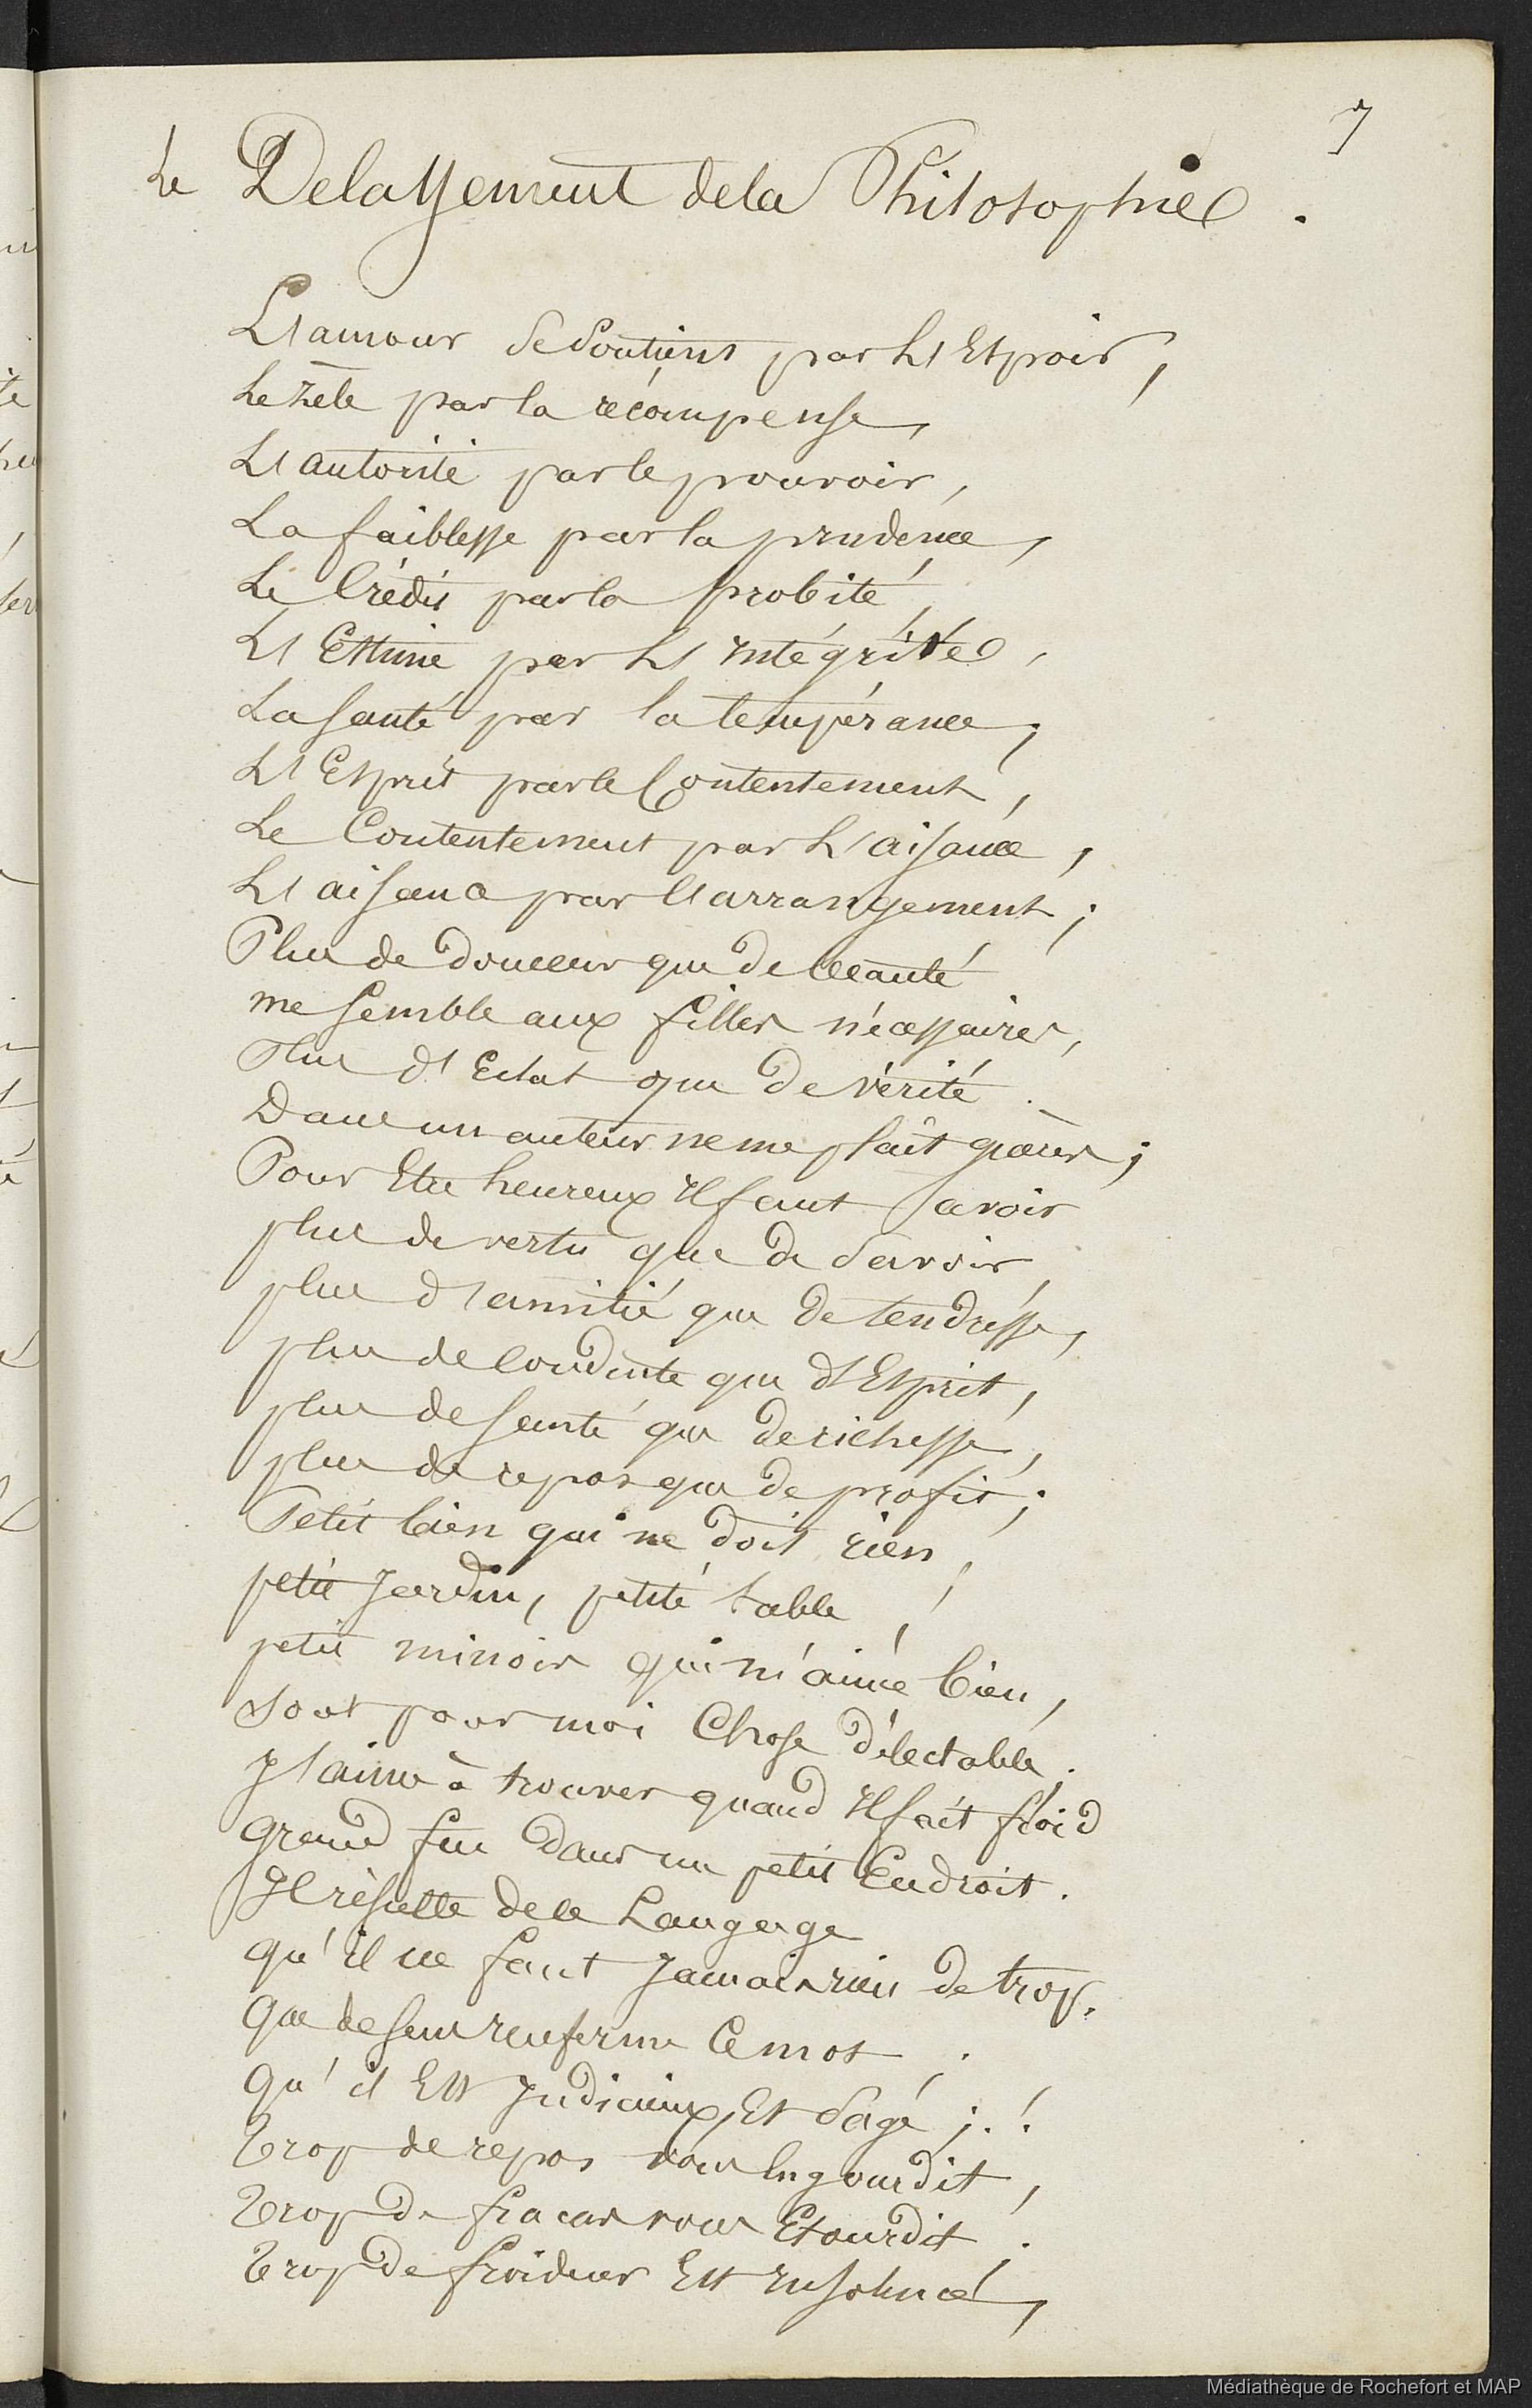 7
Le Delassement de la Philosophie.
L'amour se soutient par L'Espoir,
Le zèle par la récompense,
L'autorité par le pouvoir,
La faiblesse par la prudence,
Le Crédit par la probité,
L'Estime par L'intégrité,
La santé par la tempérance,
L'Esprit par le Contentement,
Le Contentement par L'aisance,
L'aisance par l'arrangement;
Plus de douceur que de beauté
me semble aux filles nécessaires,
Plus d'Eclat que de vérité.
Dans un auteur ne me plait guères;
Pour Etre heureux Il faut Savoir
plus de vertu que de savoir,
plus d'amitié que de tendresse,
plus de Conduite que d'Esprit,
plus de santé que de richesse,
plus de repos que de profit;
Petit bien qui ne doit rien,
petit Jardin, petite table,
petit minois qui m'aime bien,
sont pour moi Chose délectable.
J'aime à trouver quand Il fait froid
grand feu dans un petit Endroit.
Il résulte de ce Langage
qu'il ne faut Jamais rien de trop.
Que de sens renferme Ce mot,
Qu'il Est Judicieux Et sage;.!
Trop de repos nous Engourdit,
Trop de fracas nous Etourdit;
Trop de froideur Est Insolence,
Médiathèque de Rochefort et MAP